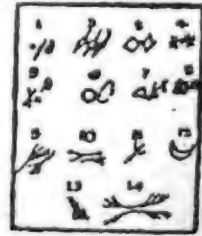 1 2 3 4
5 6 7 8
9 10 11 12
13 14